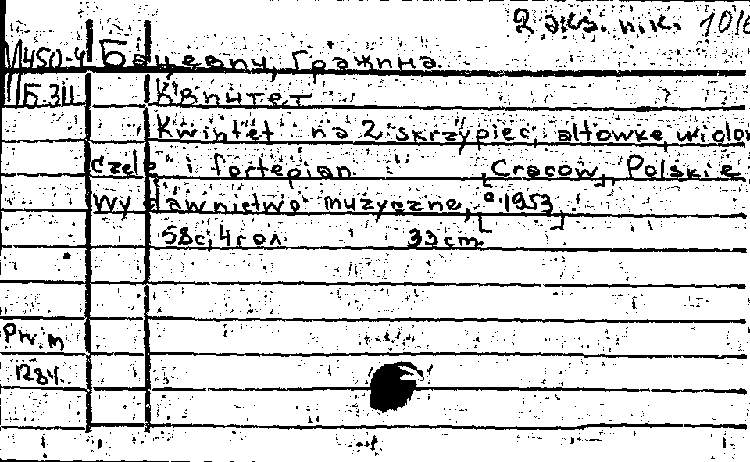 2 экз. н.к. 1016
М450-4 Бацевич, Гражина
Б 311 Квинтет
Kwintet na 2 skrzypiec, altówkę, wiolon
czelę i fortepian. [Cracow], Polskie
Wydawnictwo muzyczne, [c1953].
58с, 4 гол. 33 cm.
1284